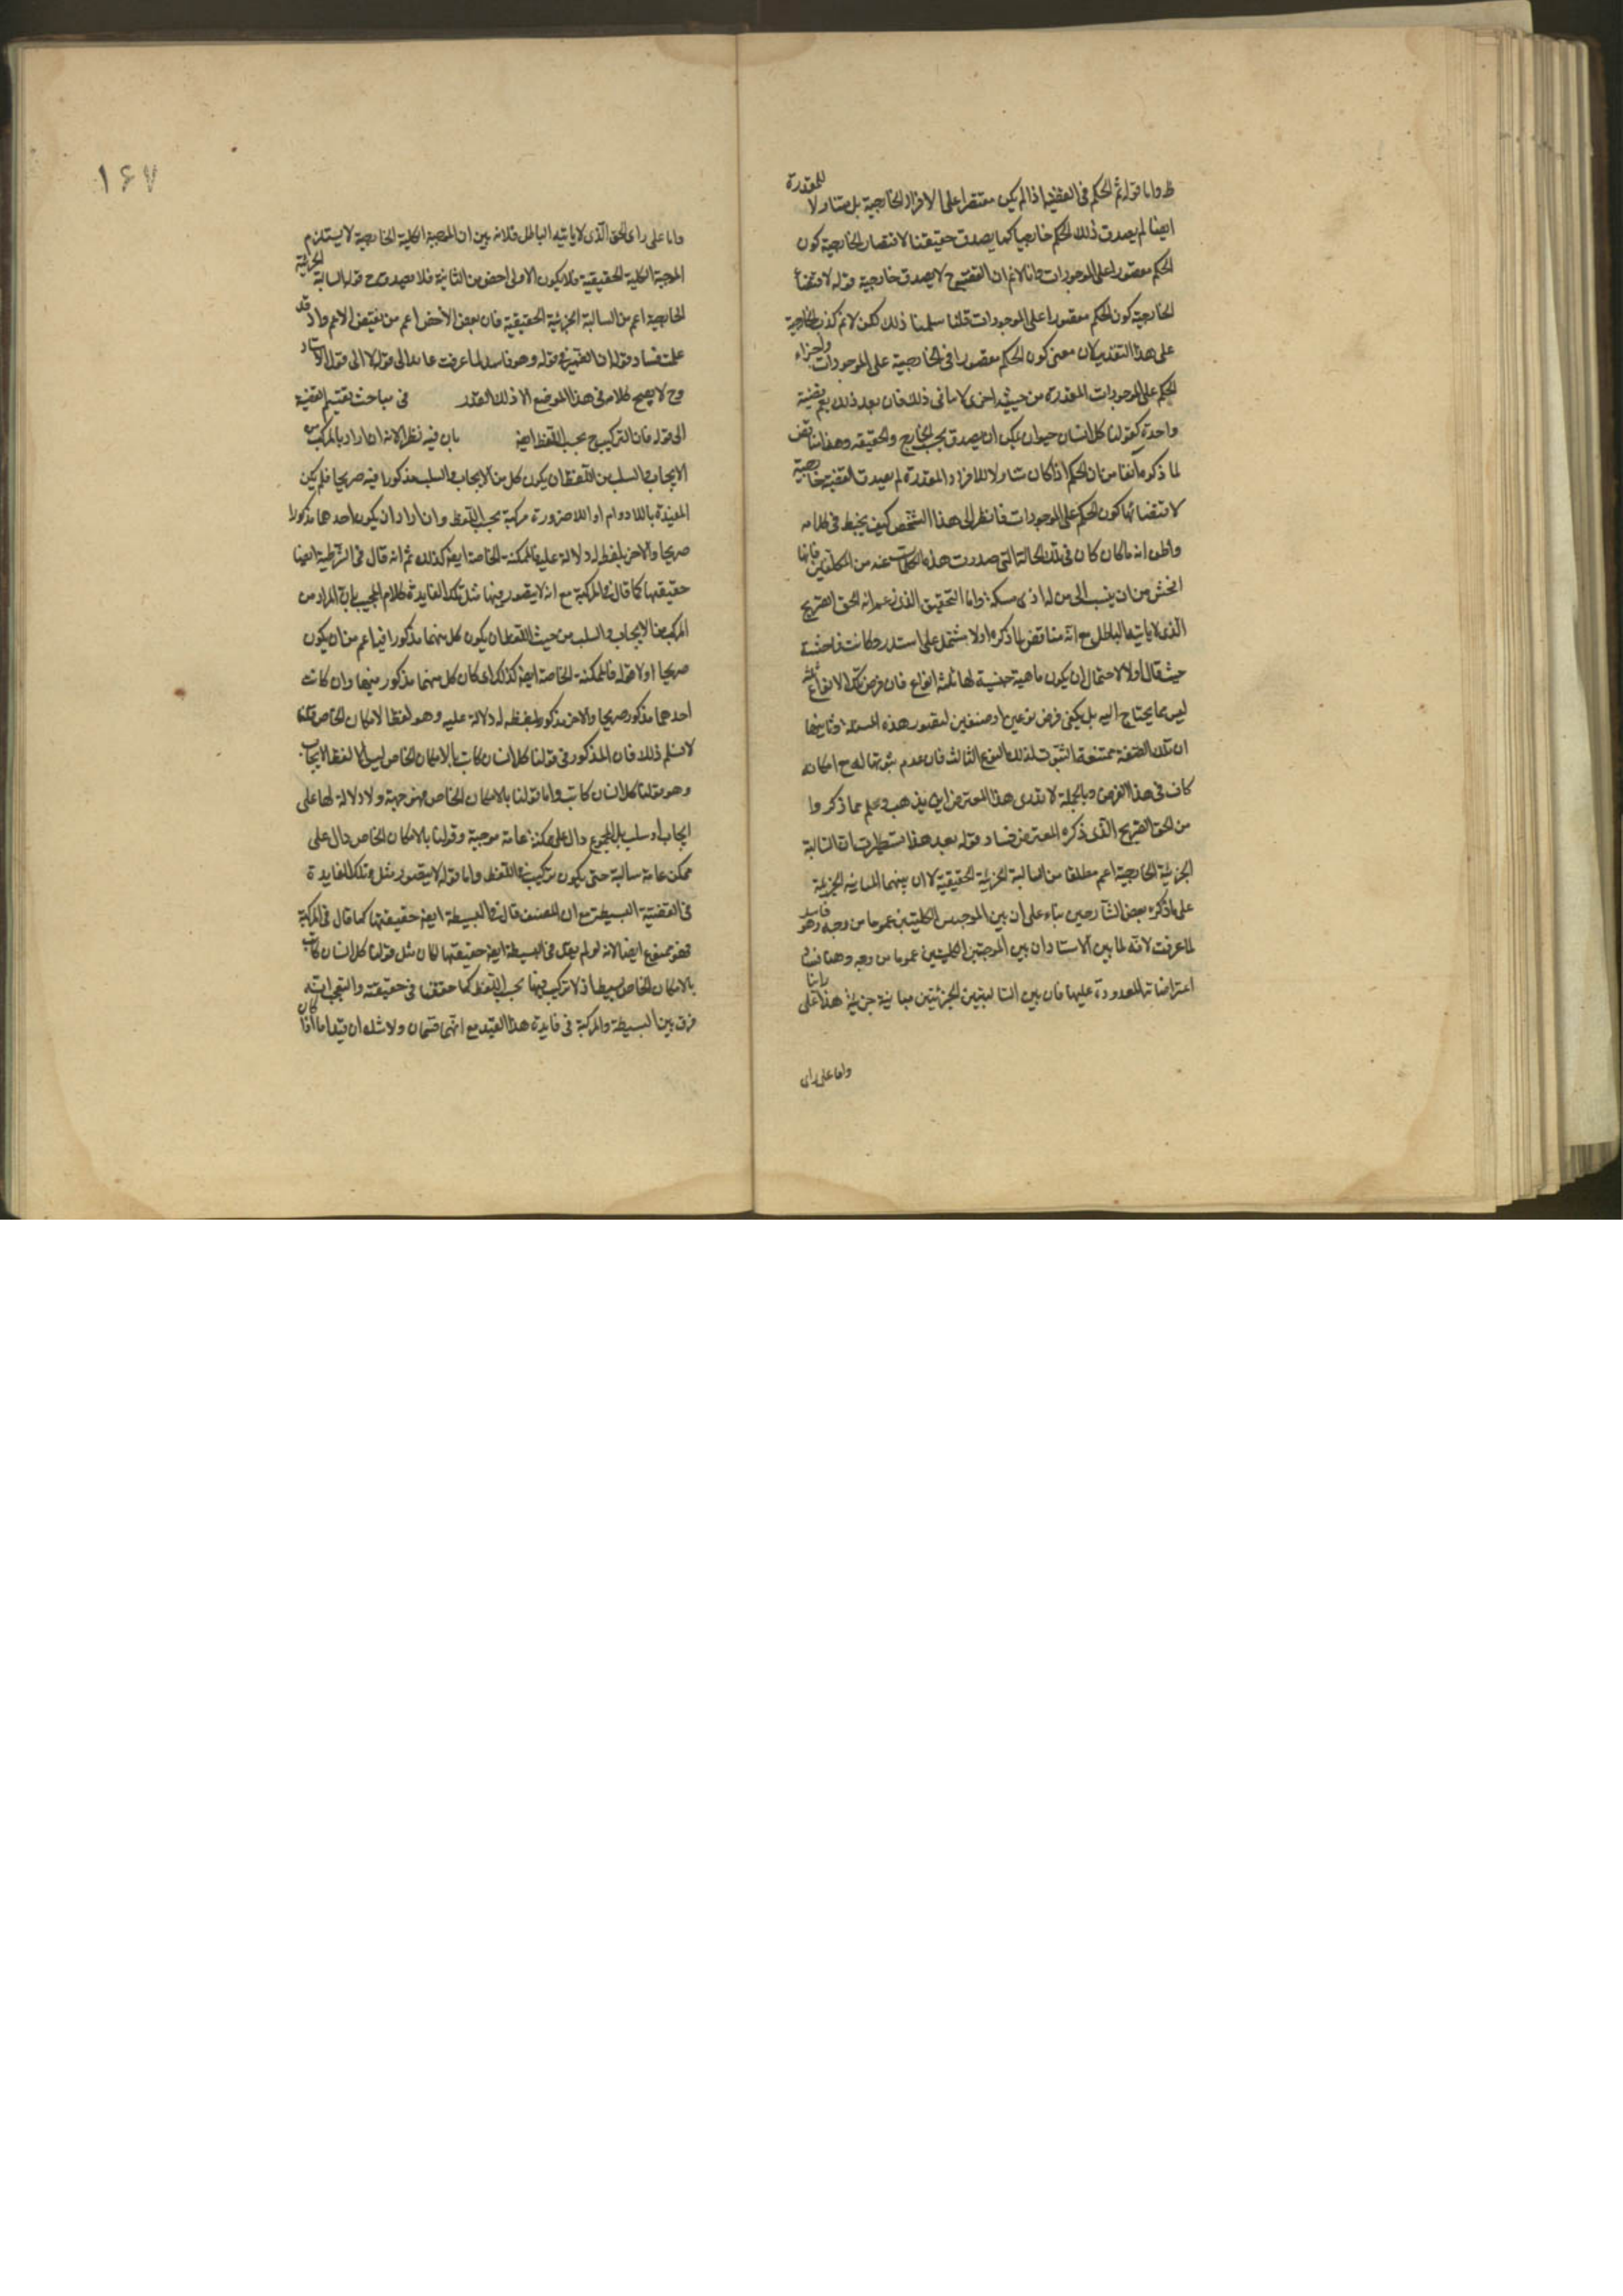 ظ واما قوله ثم الحكم فى القضية اذا لم يكن مقتصرا على الافراد الخارجية بل متناولا للمقدرة
ايضا لم يصدق ذلك الحكم خارجيا كما يصدق حقيقتنا لاقتصار الخارجية كون
الحكم مقصورا على الموجودات فانا لانم ان القضية ح لا يصدق خارجية قوله لاقتضاء
الخارجية كون الحكم مقصورا على الموجودات قلنا سلمنا ذلك لكن لانم كذب الخارجية
على هذا التقدير لان معنى كون الحكم مقصورا فى الخارجية على الموجودات واجزاء
الحكم على الموجودات المقدرة من حيثية اخرى لا ينافى ذلك فان بعد ذلك يعم قضية
واحدة كقولنا كل انسان حيوان يمكن ان يصدق بحسب الخارج والحقيقة وهذا يناقض
لما ذكره آنفا من ان الحكم اذا كان متناولا للافراد المقدرة لم يصدق القضية خارجية
لاقتضائها كون الحكم على الموجودات فانظر الى هذا الشخص كيف يخبط فى كلامه
واظن انه ما كان كان فى تلك الحالة التى صدرت هذه الكلمات عنه من المكلفين فانها
افحش من ان ينسب الى من له ادنى مسكة واما التحقيق الذى زعم انه الحق الصريح
الذى لا ياتيه الباطل مع انه مناقض لما ذكره اولا يشتمل على استدراكات فاحشة
حيث قال اولا لاحتمال ان يكون ماهية جنسية لها ثلثة انواع فان فرض تلك الانواع الثلثة
ليس مما يحتاج اليه بل يكفى فرض نوعين او صنفين لتصور هذه المسئلة وثانيها
ان تلك الصفة ممتنعة الثبوت لذلك النوع الثالث فان عدم ثبوتها له مع امكانه
كاف فى هذا الغرض وبالجملة لا ندرى هذا المعترض اين يذهب وعلم مما ذكروا
من الحق الصريح الذى ذكره المعترض فساد قوله بعد هذا بسطر ان السالبة
الجزئية الخارجية اعم مطلقا من السالبة الجزئية الحقيقية لا ان بينهما المباينة الجزئية
على ما ذكره بعض الشارحين بناء على ان بين الموجبتين الكليتين عموما من وجه وهو فاسد
لما عرفت لانه لما بين الاستاد ان بين الموجبتين الكليتين عموما من وجه وهنا
اعتراضاته المعدودة عليها فان بين السالبتين الجزئيتين مباينة جزئية هذا على راينا
واما على راى
١٦٧
واما على راى الحق الذى لا ياتيه الباطل فلانه بين ان الموجبة الكلية الخارجية لا يستلزم
الموجبة الكلية الحقيقية فلا يكون الاولى اخص من الثانية فلا يصدق ح قوله السالبة الجزئية
الخارجية اعم من السالبة الجزئية الحقيقية فان نقيض الاخص اعم من نقيض الاعم واذ قد
علمت فساد قوله ان الضمير فى قوله وهو فاسد لما عرفت عائد الى قوله لا الى قول الاستاد
وح لا يصح كلامه فى هذا الموضع الا ذلك القدر فى مباحث تقسيم القضية
الى قوله فان التركيب ح بحسب اللفظ ايضه بان فيه نظر لانه ان اراد بالمركب من
الايجاب والسلب من اللفظ ان يكون كل من الايجاب والسلب مذكورا فيه صريحا فلم يكن
المقيدة باللادوام او اللاضرورة مركبة بحسب اللفظ وان اراد ان يكون احدهما مذكورا
صريحا والاخر بلفظ له دلالة عليه فالممكنة الخاصة ايضه كذلك ثم انه قال فى الشرطية ايضا
حقيقتها كما قال فى المركبة مع انه لا يتصور فيها مثل تلك الفايدة كلام المجيب بان المراد من
المركب من الايجاب والسلب من حيث اللفظ ان يكون كل منهما مذكورا فيه اعم من ان يكون
صريحا اولا قوله فالممكنة الخاصة ايضه كذلك اى كان كل منهما مذكور فيها وان كانت
احدهما مذكور صريحا والاخر مذكور بلفظ له دلالة عليه وهو لفظ الامكان الخاص قلنا
لا نسلم ذلك فان المذكور فى قولنا كل انسان كاتب بالامكان الخاص ليس الا لفظ الايجاب
وهو قولنا كل انسان كاتب واما قولنا بالامكان الخاص فهو جهة ولا دلالة لها على
ايجاب او سلب بل المجموع دال على ممكنة عامة موجبة وقولنا بالامكان الخاص دال على
ممكن عامة سالبة حتى يكون تركيب فى اللفظ واما قوله لا يتصور مثل تلك الفايدة
فى القضية البسيطة مع ان المصنف قال فى البسيطة ايضه حقيقتها كما قال فى المركبة
فهو ممنوع ايضا لانه لو لم يقل فى البسيطة ايضه حقيقتها لكان مثل قولنا كل انسان كاتب
بالامكان الخاص بسيطا اذ لا تركيب فيها بحسب اللفظ كما حققنا فى حقيقته والتعجب انه
فرق بين البسيطة والمركبة فى فايدة هذا القيد مع انهما قسمان ولا شك ان قيدا ما اذا كان